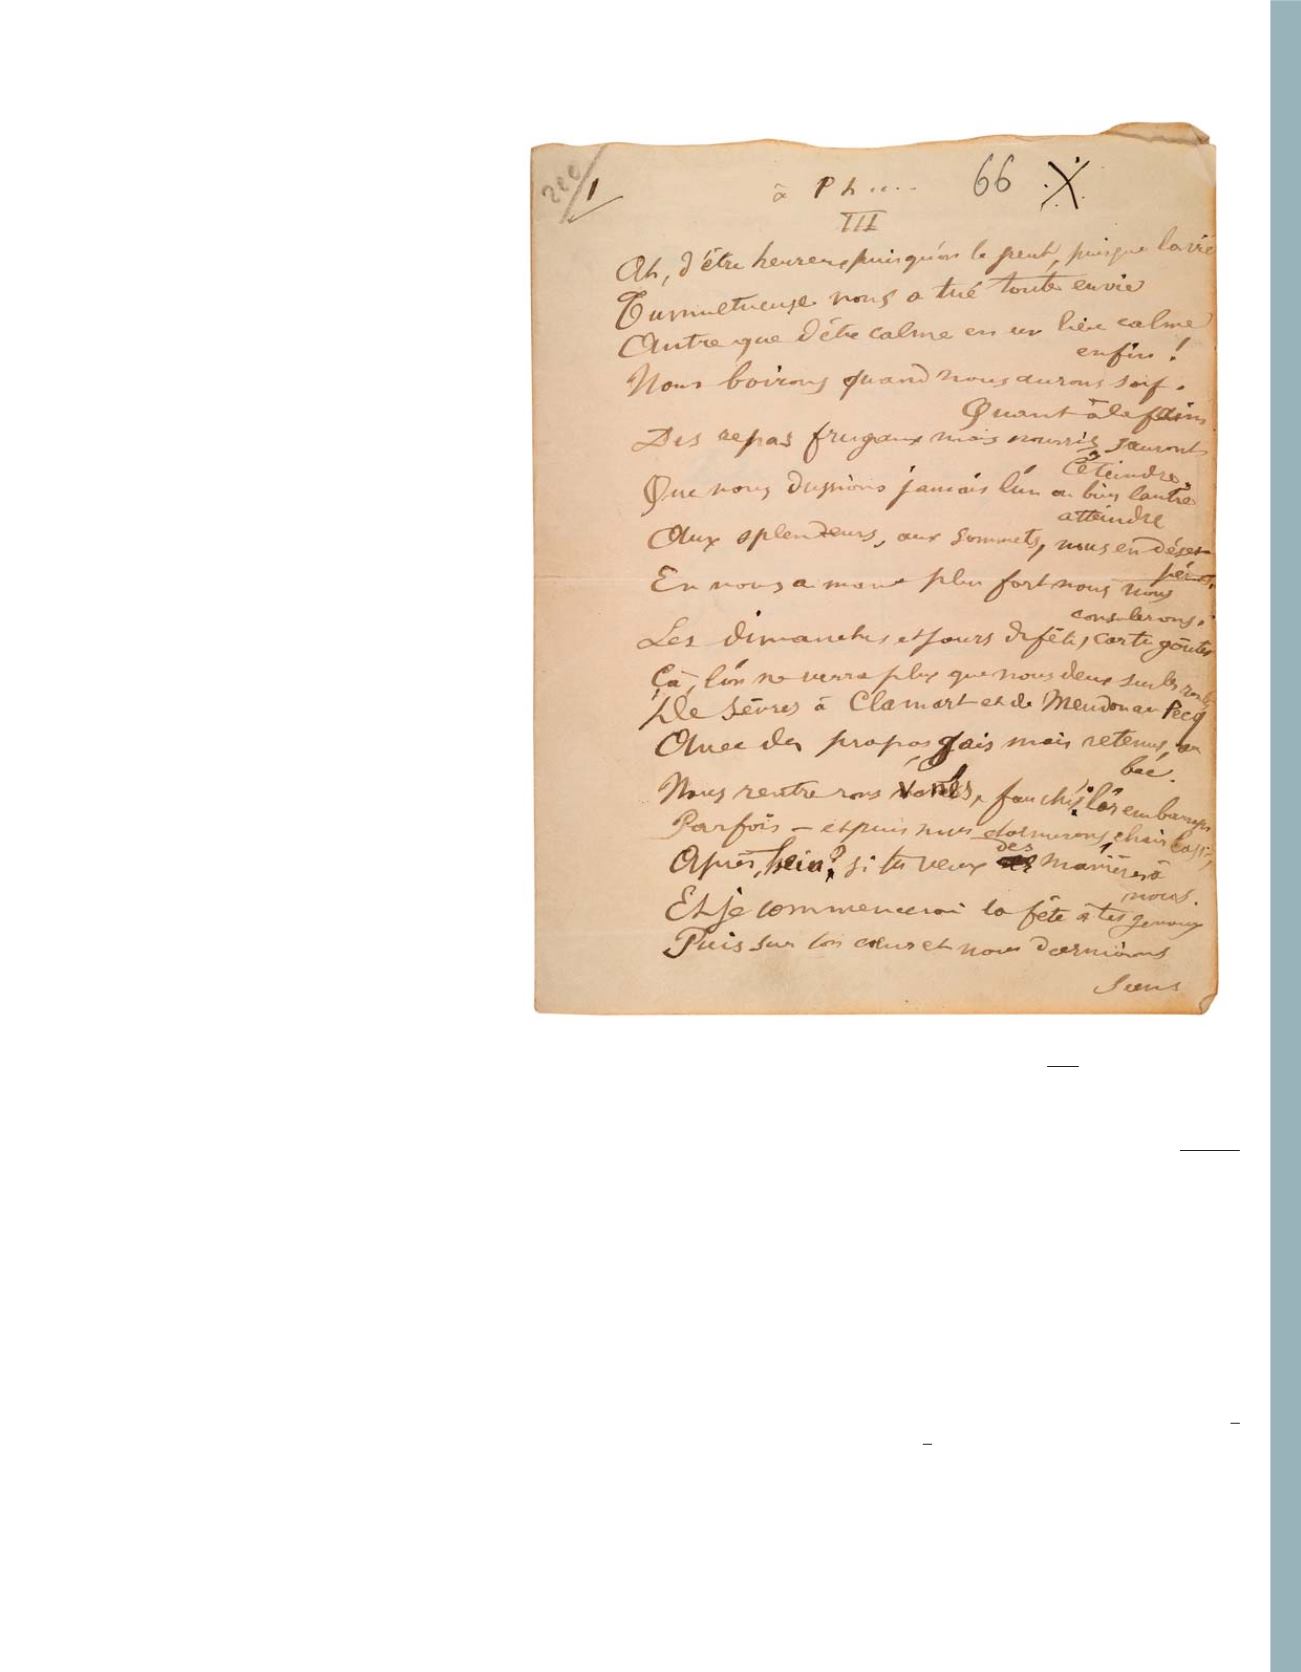 1
à Ph....
66 X
III
Ah, d'être heureux puisqu'on le peut, puisque la vie
Tumultueuse nous a tué toute envie
Autre que d'être calme en un lieu calme
enfin !
Nous boirons quand nous aurons soif.
Quant à la faim
Des repas frugaux mais nourris sauront
l'éteindre.
Que nous dussions jamais l'un ou bien l'autre
atteindre
Aux splendeurs, aux sommets, nous en déses-
pérons.
En nous aimant plus fort nous nous
consolerons.
Les dimanches et jours de fête,
Çà, l'on ne verra plus que nous deux sur les routes
De Sèvres à Clamart et de Meudon au Pecq
Avec des propos gais mais retenus, au
bec.
Nous rentrerons vanés, fauchés, l'air
Parfois — et puis nous dormirons, chair lasse,
Après, hein ? si tu veux des manières à
nous.
Et je commencerai la fête à tes genoux
Puis sur ton cœur et nous dormirons